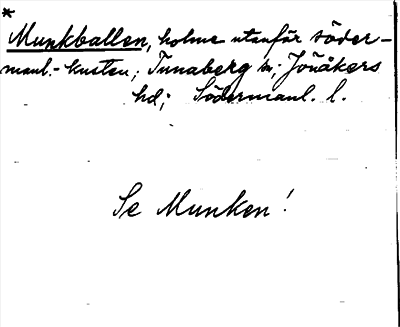 *
Munkballen, holme utanför söder-
manl.-kusten; Tunaberg sn; Jönåkers
hd; Södermanl. l.
Se Munken!